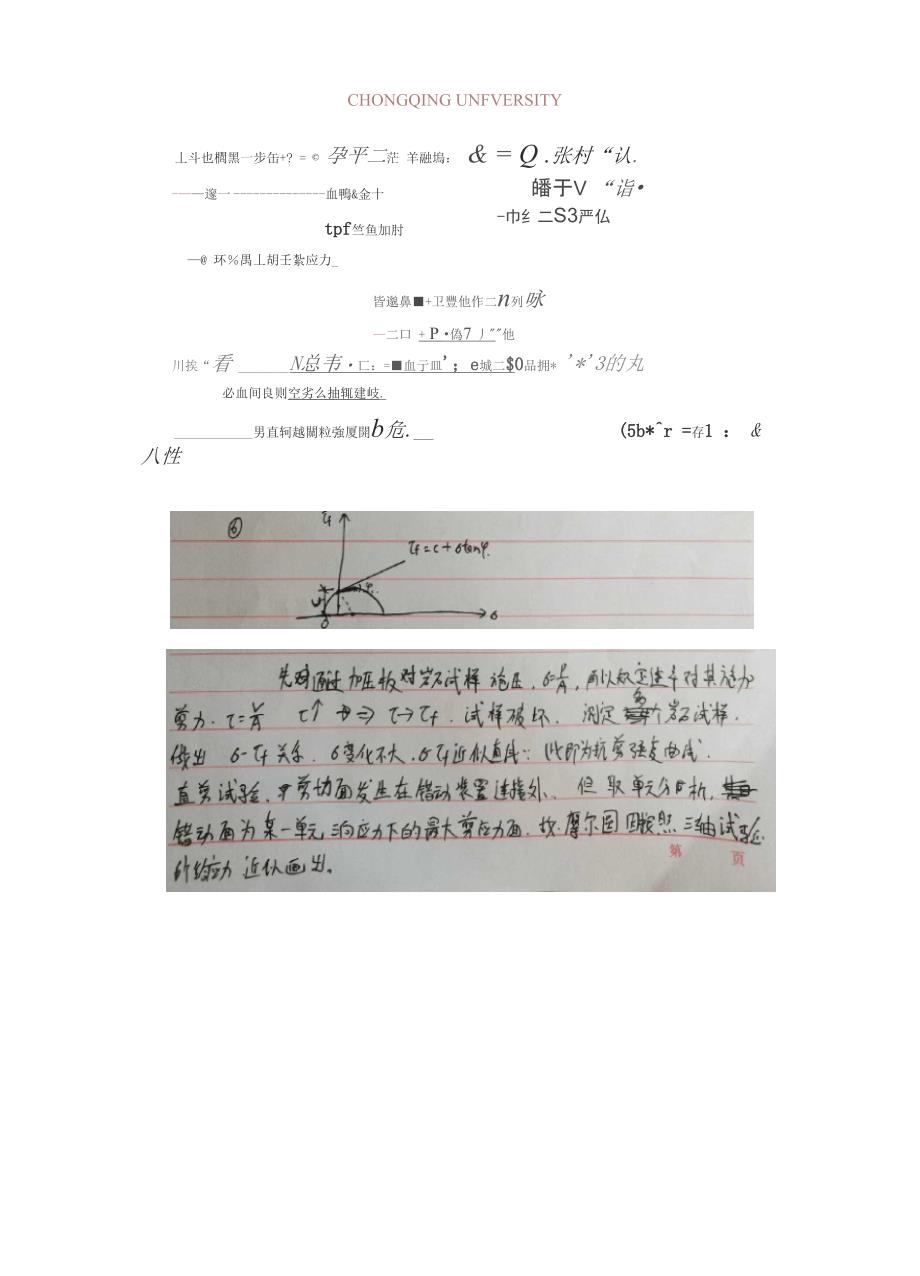 CHONGQING UNFVERSITY
丄斗也櫚黑一步缶+? = © 孕平二茫 羊融塢： & = Q .张村“认.
-——邃一 --------------血鴨&金十 皤于V “诣•
-巾纟二S3严仏
tpf竺鱼加肘
—@ 环%禺丄胡壬紮应力_
皆邋鼻■+卫豐他作二n列咏
—二口 + P •偽7 丿""他
川挨“看 ______N总韦·匚：=■血亍皿'；e城二$0品拥* '*'3的丸
必血间良则空劣么抽辄建岐.
___________男直轲越關粒強厦開b危.__ (5b*^r =存1 ： &
八性
⑥ τf
τf = c + σtanφ.
φ
c
0 σ
先对通过加压板对岩石试样施压，σ=P/A，再以规定速率对其施加
剪力. τ=V/A τ↑ ⇒ τ→τf . 试样破坏. 测定多个岩石试样.
做出 σ-τf 关系. σ变化不大，σ-τf近似直线：此即为抗剪强度曲线.
直剪试验，剪切面发生在错动装置连接处、但取单元分析，
错动面为某一单元三向应力下的最大剪应力面. 故摩尔圆 照三轴试验
的 应力近似画出。
第 页